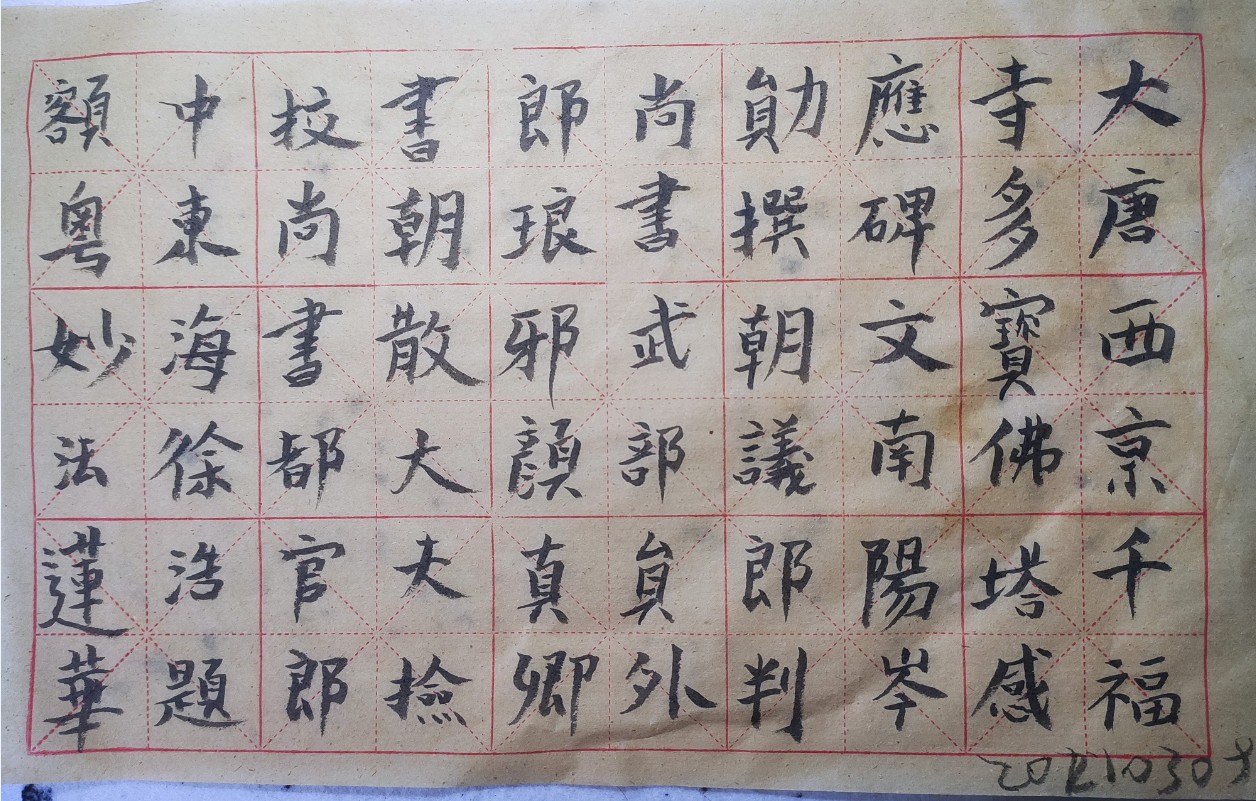 大唐西京千福
寺多寶佛塔感
應碑文南陽岑
勛撰朝議郎判
尚書武部員外
郎琅邪顏真卿
書朝散大夫撿
校尚書都官郎
中東海徐浩題
額粵妙法蓮華